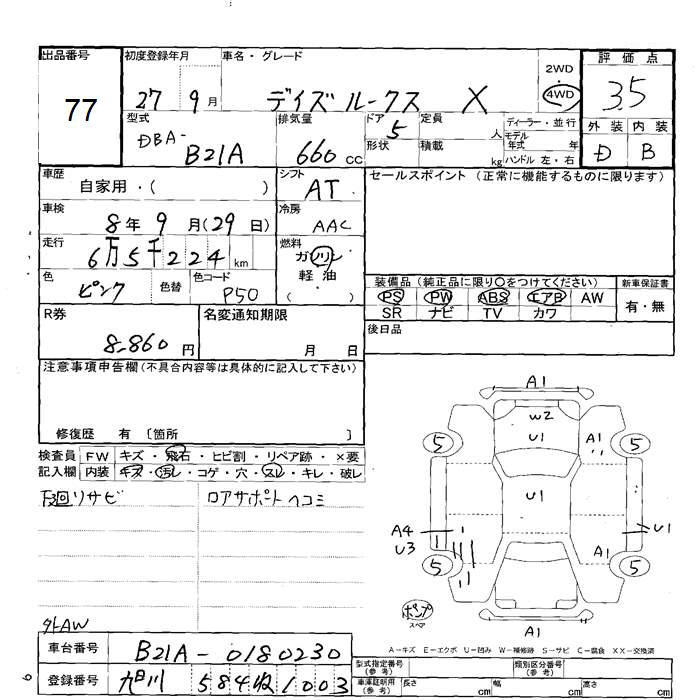 出品番号
77
初度登録年月
27 9月
車名・グレード
デイズルークス X
2WD
4WD
評価点
3.5
外装 内装
D B
型式
DBA-
B21A
排気量
660 cc
ドア
5
形状
定員
人
積載
kg
ディーラー・並行
モデル
年式 年
ハンドル 左・右
車歴
自家用・( )
シフト
AT
セールスポイント (正常に機能するものに限ります)
車検
8年 9月(29日)
冷房
AAC
走行
6万5千224km
燃料
ガソリン
軽油
( )
色
ピンク
色替
色コード
P50
装備品 (純正品に限り○をつけてください)
PS PW ABS エアB AW
SR ナビ TV カワ
新車保証書
有・無
R券
8,860円
名変通知期限
月 日
後日品
注意事項申告欄 (不具合内容等は具体的に記入して下さい)
修復歴 有 〔箇所 〕
検査員 FW キズ・飛石・ヒビ割・リペア跡・×要
記入欄 内装 キズ・汚レ・コゲ・穴・スレ・キレ・破レ
下廻リサビ
ロアサポートヘコミ
外AW
A1
W2
U1
A1
5
5
U1
A4
U3
U1
A1
5
5
ポンプ
スペア
A1
A-キズ E-エクボ U-凹み W-補修跡 S-サビ C-腐食 XX-交換済
車台番号
B21A-0180230
登録番号
旭川 584 ぬ 1003
型式指定番号
(参考)
類別区分番号
(参考)
車庫証明用
(参考)
長さ cm
幅 cm
高さ cm